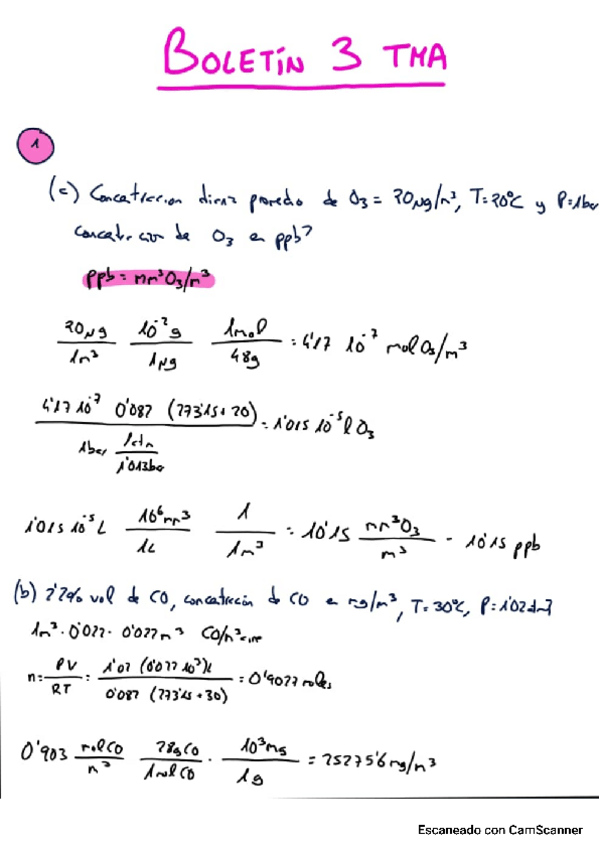 BOLETÍN 3 TMA
1
(c) Concentracion diaria promedio de O3 = 20µg/m³, T=20°C y P=1bar
concentracion de O3 en ppb?
ppb = mm³O3/m³
20µg/1m³ 10⁻⁶g/1µg 1mol/48g = 4'17 10⁻⁷ mol O3/m³
4'17 10⁻⁷ 0'082 (273'15+20) / 1bar 1atm/1'013bar = 1'015 10⁻⁵ l O3
1'015 10⁻⁵ L 10⁶mm³/1L 1/1m³ = 10'15 mm³O3/m³ - 10'15 ppb
(b) 2'2% vol de CO, concentración de CO en mg/m³, T=30°C, P=1'02atm?
1m³ · 0'022 · 0'022 m³ CO/m³aire
n = PV/RT = 1'02 (0'022 10³)l / 0'082 (273'15+30) = 0'9027 moles
0'903 molCO/m³ 28gCO/1molCO · 10³mg/1g = 25275'6 mg/m³
Escaneado con CamScanner